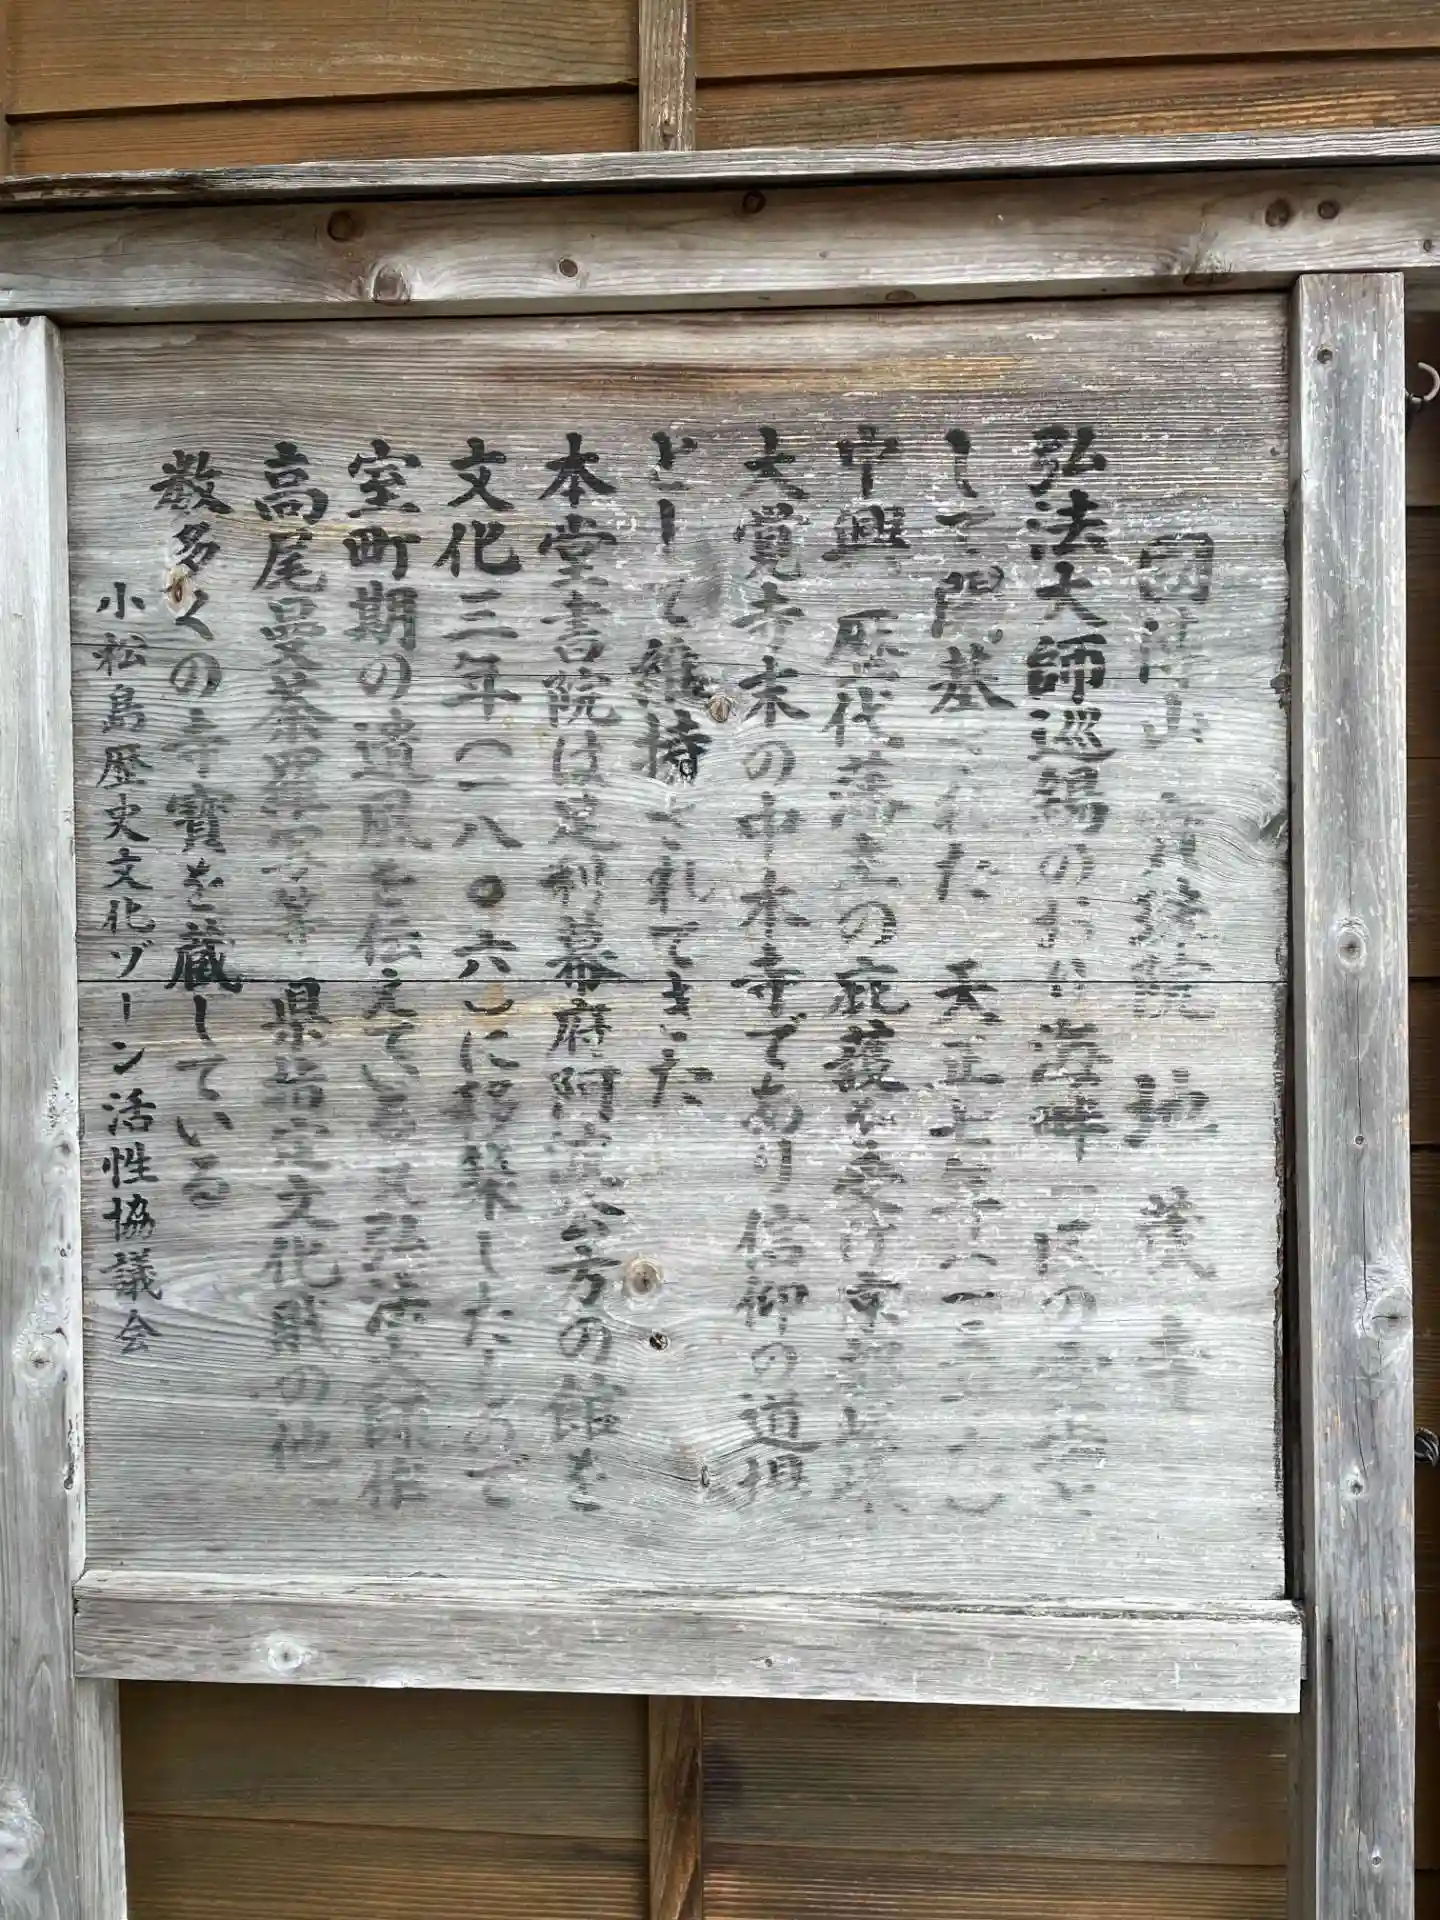 国伝山 宝珠院 地蔵寺
弘法大師巡錫のおり海畔一
して開基された 天正
中興 歴代藩主の庇護を受け京都嵯峨
大覚寺末の中本寺であり信仰の道場
として維持されてきた
本堂書院は足利幕府阿波公方の館を
文化三年(一八〇六)に移築したもので
室町期の遺風を伝えている 弘法大師作
高尾曼荼羅 等 県指定文化財の他
数多くの寺寶を蔵している
小松島歴史文化ゾーン活性協議会